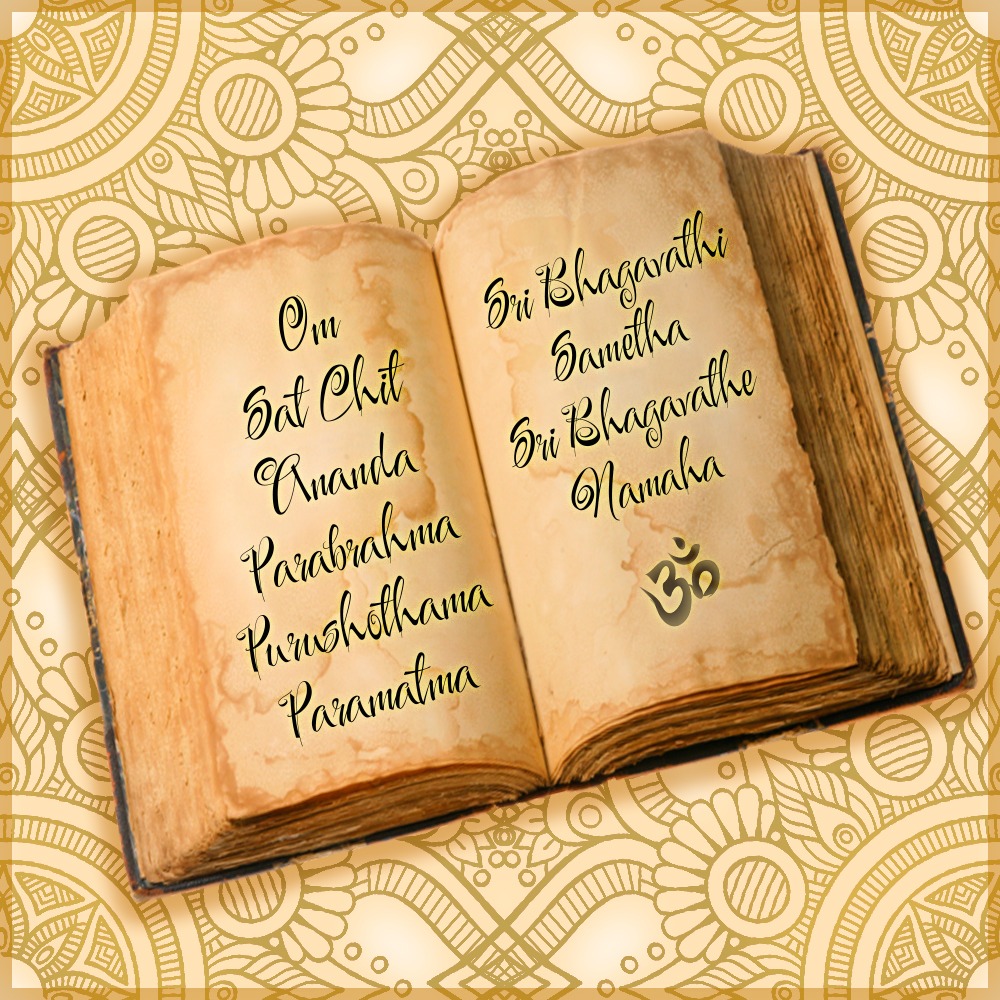 Om
Sat Chit
Ananda
Parabrahma
Purushothama
Paramatma
Sri Bhagavathi
Sametha
Sri Bhagavathe
Namaha
ॐ